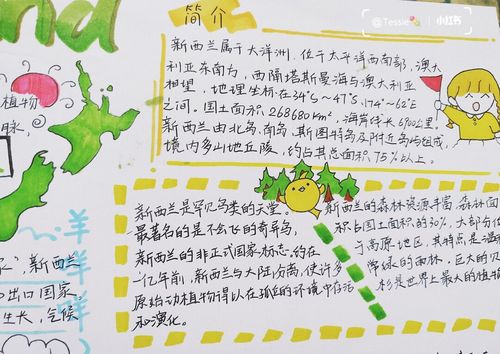 nd
简介
@Tessie
小红书
新西兰属于大洋洲.位于太平洋西南部,澳大
利亚东南方,西隔塔斯曼海与澳大利亚
相望,地理坐标在34°S~47°S,174°~62°E
之间。国土面积,268680Km²,海岸线长6900公里。
新西兰由北岛,南岛,斯图特岛及附近岛屿组成
境内多山地丘陵,约占其总面积,75%以上。
植物
脉,
新西兰是罕见鸟类的天堂。
最著名的是不会飞的奇异鸟,
新西兰的非正式国家标志,约在
一亿年前,新西兰与大陆分离,使许多
原始动植物得以在孤立的环境中存活
和演化。
新西兰的森林资源丰富.森林面
积占国土面积的30%,大部分
于高原地区,其特点是
常绿的雨林,巨大的贝
杉是世界上最大的植
羊
羊
羊
新西兰
出口国家
生长,气候